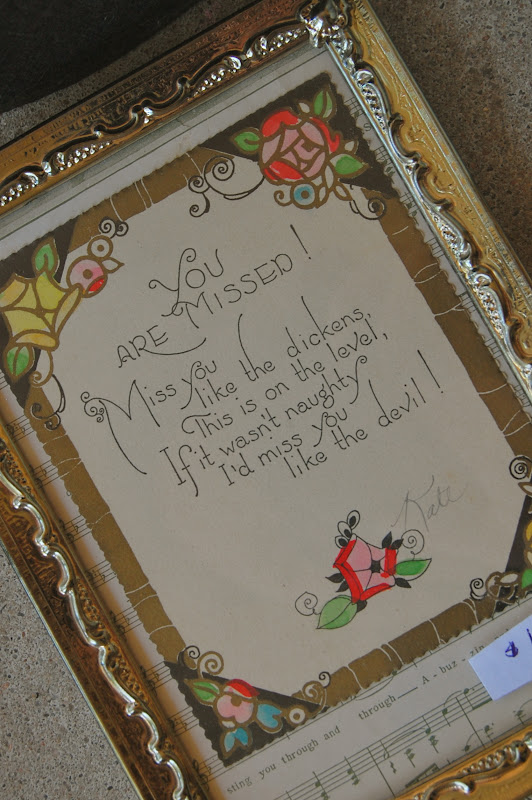 YOU
ARE MISSED!
Miss you
like the dickens,
This is on the level,
If it wasn't naughty
I'd miss you
like the devil!
Kate
sting you through and through— A-buz-zin